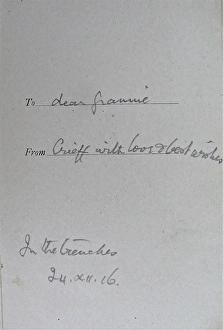 To dear Grannie
From Crieff with love & best wishes
In the trenches
24.XII.16.